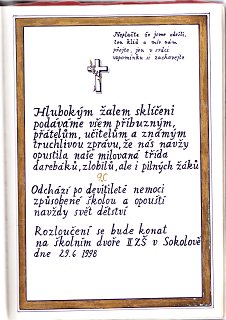 Neplačte že jsme odešli,
ten klid a mír nám
přejte, jen v srdci
vzpomínku si zachovejte
Hlubokým žalem sklíčeni
podáváme všem příbuzným,
přátelům, učitelům a známým
truchlivou zprávu, že nás navždy
opustila naše milovaná třída
darebáků, zlobilů, ale i pilných žáků
9.C
Odchází po devítileté nemoci
způsobené školou a opouští
navždy svět dětství
Rozloučení se bude konat
na školním dvoře II ZŠ v Sokolově
dne 29.6 1998